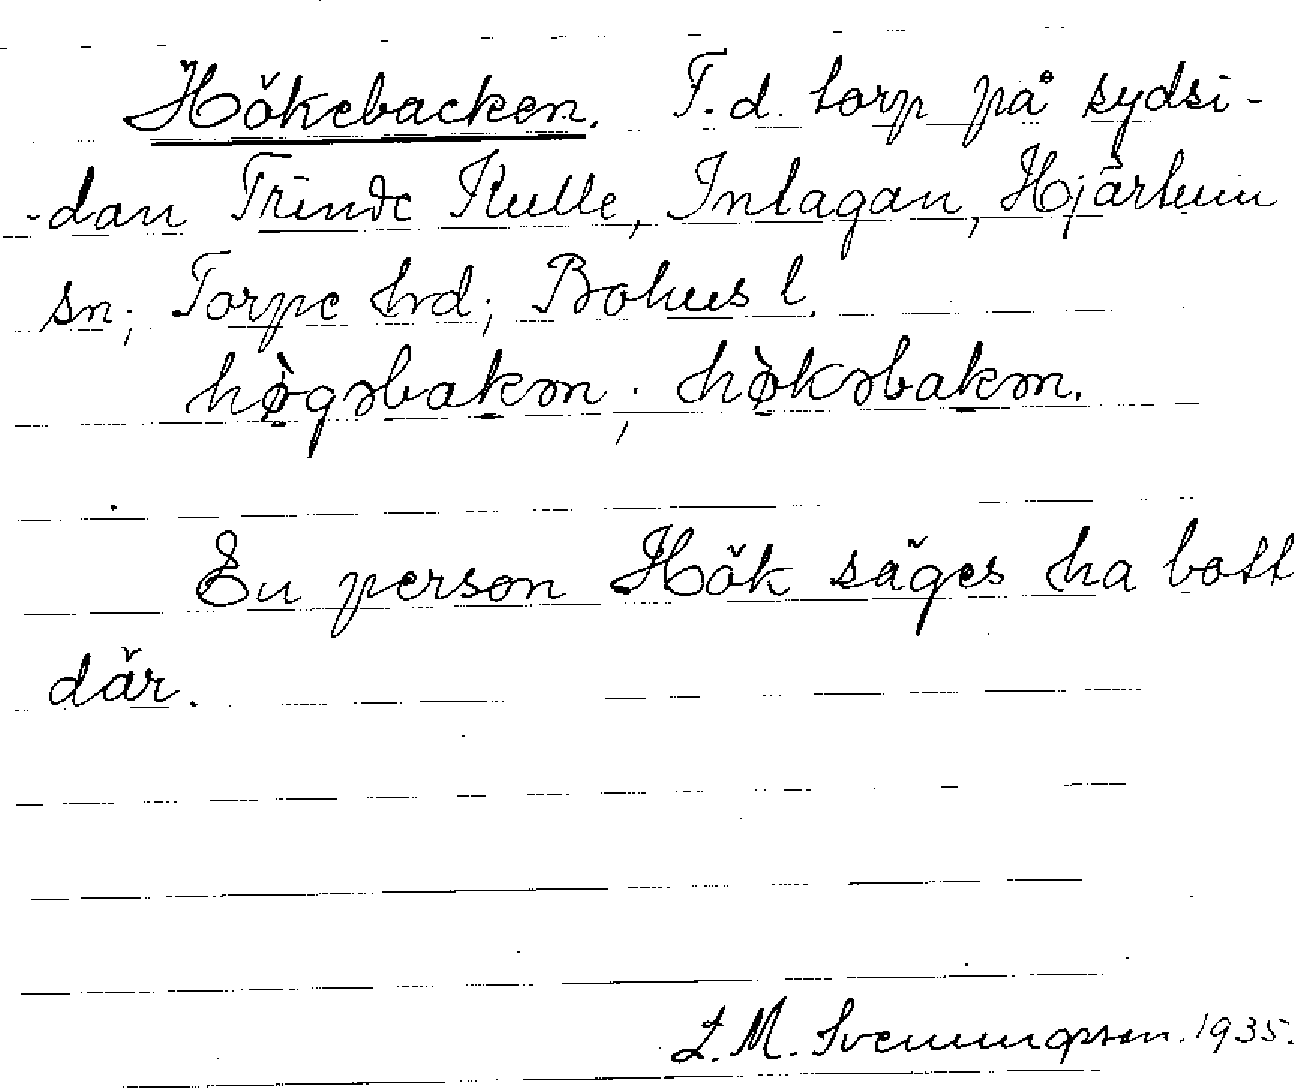 Hökebacken. F.d. torp på sydsi-
-dan Trinde Kulle, Intagan, Hjärtum
sn; Torpe hrd; Bohus l.
hø̀gəbakən; hø̀kəbakən.
En person Hök säges ha bott
där.
L. M. Svenungsson. 1935.